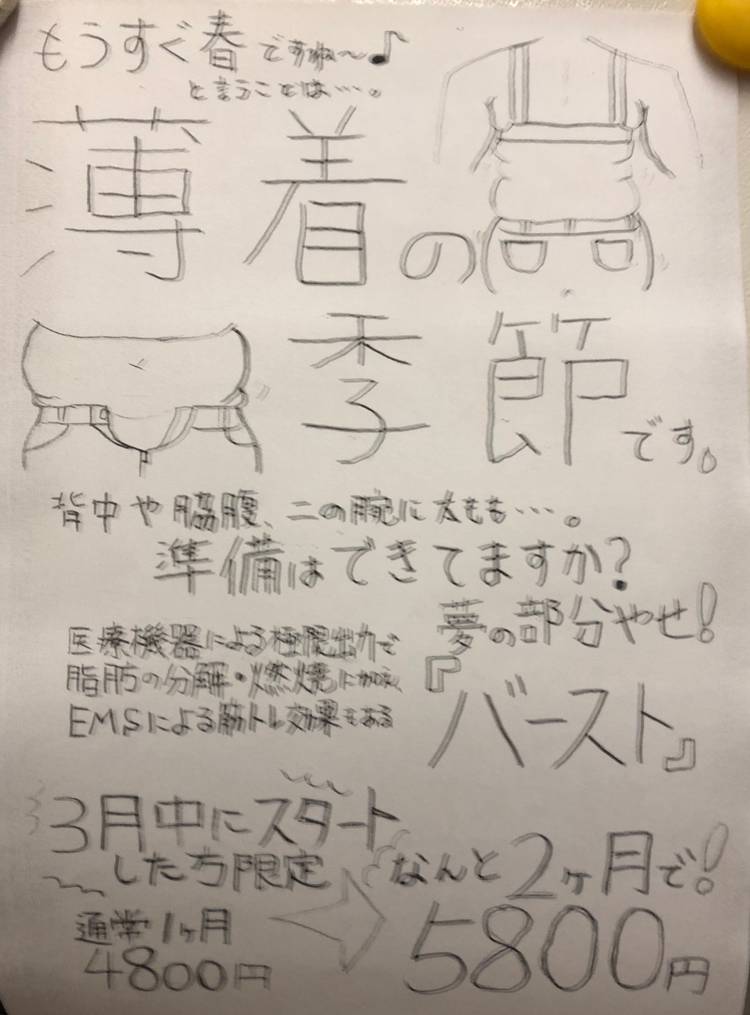 もうすぐ春ですね〜♪
と言うことは…。
薄着の
季節です。
背中や脇腹、二の腕に太もも…。
準備はできてますか?
夢の部分やせ!
医療機器による極限出力で
脂肪の分解・燃焼に加え、
EMSによる筋トレ効果もある
『バースト』
3月中にスタート
した方限定
通常1ヶ月
4800円
なんと2ヶ月で!
5800円